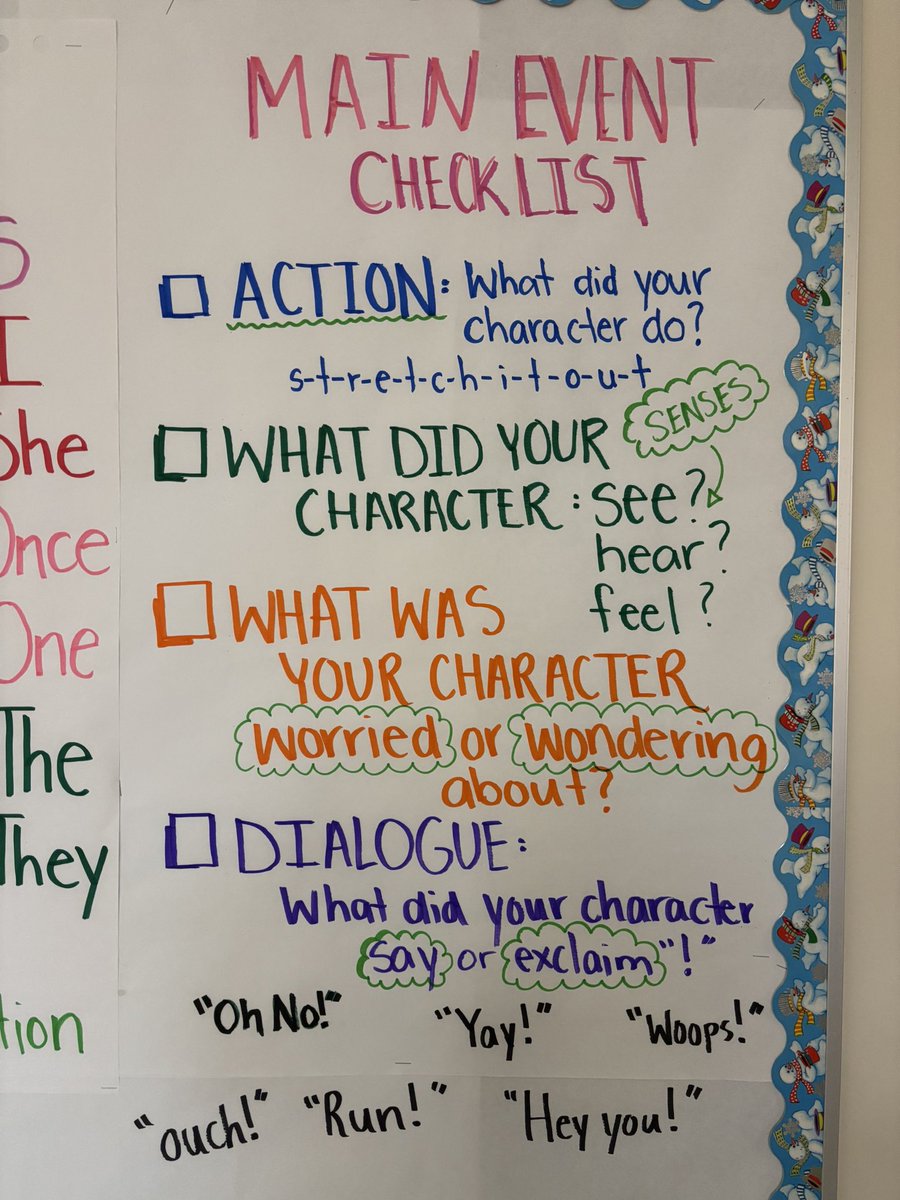 MAIN EVENT
CHECKLIST
ACTION: What did your
character do?
s-t-r-e-t-c-h-i-t-o-u-t
SENSES
WHAT DID YOUR
CHARACTER: see?
hear?
feel?
WHAT WAS
YOUR CHARACTER
worried or wondering
about?
DIALOGUE:
What did your character
say or exclaim "!"
"Oh No!" "Yay!" "Woops!"
"ouch!" "Run!" "Hey you!"
S
I
She
Once
One
The
They
tion